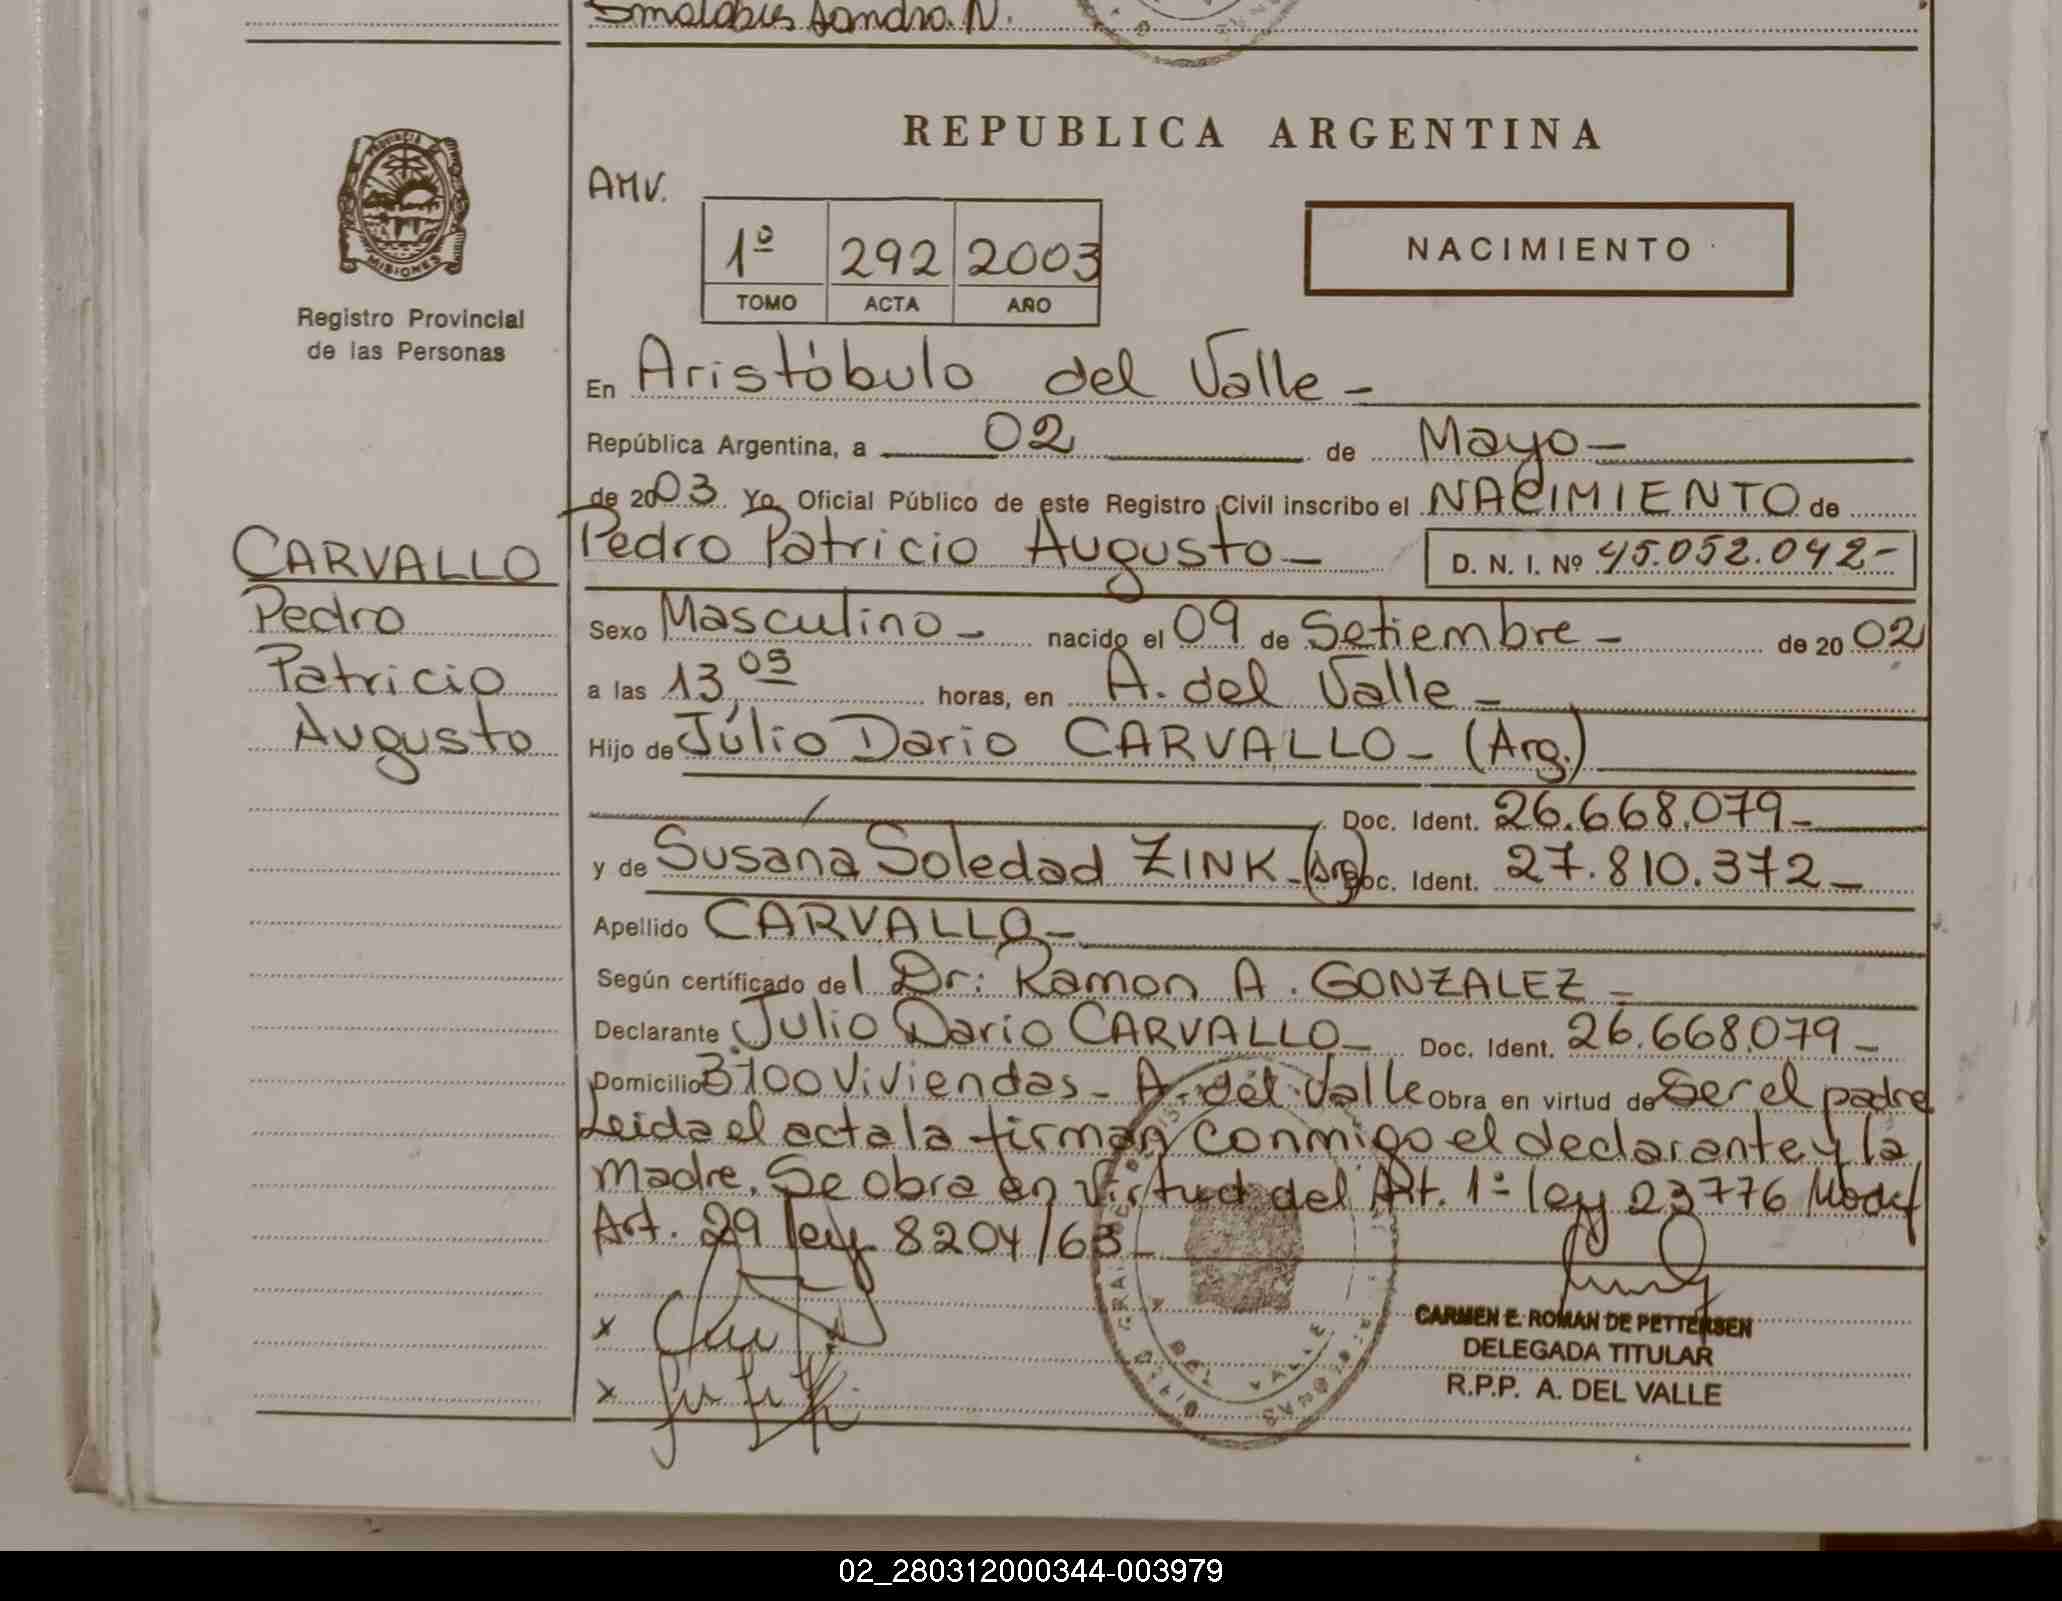 Smolobus Sandra. N.
REPUBLICA ARGENTINA
PROVINCIA DE
MISIONES
Registro Provincial
de las Personas
AMV.
1º 292 2003
TOMO ACTA AÑO
NACIMIENTO
En Aristóbulo del Valle -
República Argentina, a 02 de Mayo -
de 2003 Yo, Oficial Público de este Registro Civil inscribo el NACIMIENTO de
CARVALLO
Pedro
Patricio
Augusto
Pedro Patricio Augusto - D. N. I. Nº 45.052.042-
Sexo Masculino - nacido el 09 de Setiembre - de 20 02
a las 13 05 horas, en A. del Valle -
Hijo de Júlio Dario CARVALLO - (Arg.)
Doc. Ident. 26.668.079 -
y de Susana Soledad ZINK - (Arg) Doc. Ident. 27.810.372 -
Apellido CARVALLO -
Según certificado del Dr: Ramon A. GONZALEZ -
Declarante Julio Dario CARVALLO - Doc. Ident. 26.668.079 -
Domicilio 3100 Viviendas - A. del Valle Obra en virtud de Ser el padre
Leida el acta la firman conmigo el declarante y la
Madre. Se obra en Virtud del Art. 1º ley 23776 Modif
Art. 29 ley 8204/63 -
x
x
DEL VALLE
CARMEN E. ROMAN DE PETTERSEN
DELEGADA TITULAR
R.P.P. A. DEL VALLE
02_280312000344-003979